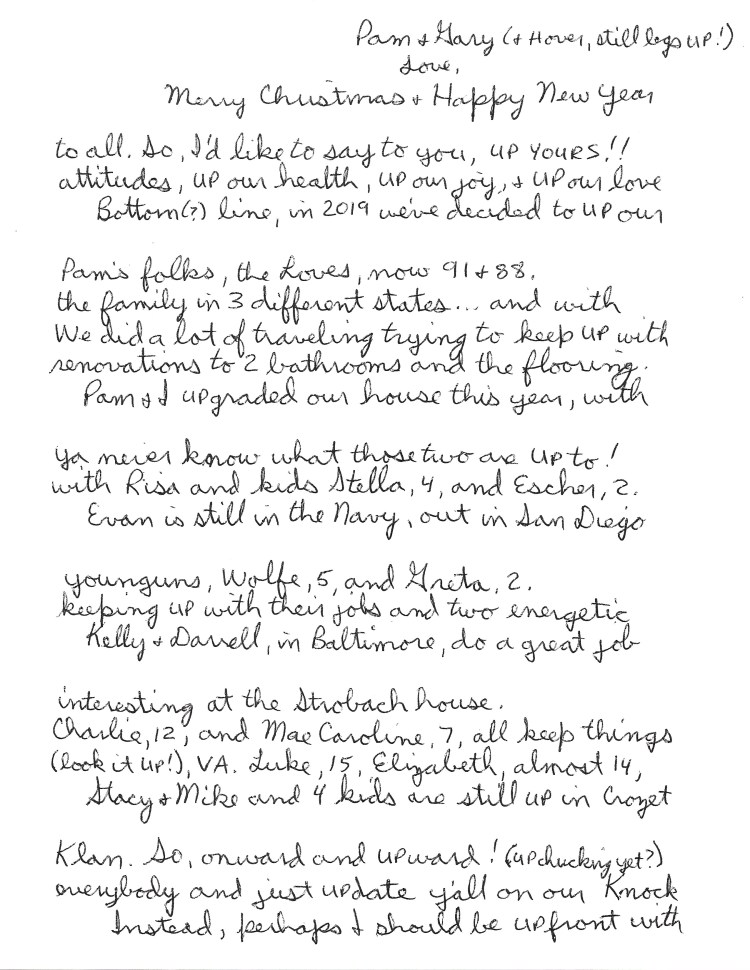 Pam & Gary (& Hover, still legs UP!)
Love,
Merry Christmas & Happy New Year
to all. So, I'd like to say to you, UP YOURS!!
attitudes, UP our health, UP our joy, & UP our love
Bottom(?) line, in 2019 we've decided to UP our
Pam's folks, the Loves, now 91 & 88.
the family in 3 different states... and with
We did a lot of traveling trying to keep UP with
renovations to 2 bathrooms and the flooring.
Pam & I UPgraded our house this year, with
Ya never know what those two are UP to!
with Risa and kids Stella, 4, and Escher, 2.
Evan is still in the Navy, out in San Diego
younguns, Wolfe, 5, and Greta, 2.
keeping UP with their jobs and two energetic
Kelly & Darrell, in Baltimore, do a great job
interesting at the Strobach house.
Charlie, 12, and Mae Caroline, 7, all keep things
(look it UP!), VA. Luke, 15, Elizabeth, almost 14,
Stacy & Mike and 4 kids are still UP in Crozet
Klan. So, onward and UPward! (UPchucking yet?)
everybody and just UPdate y'all on our Knock
Instead, perhaps I should be UPfront with